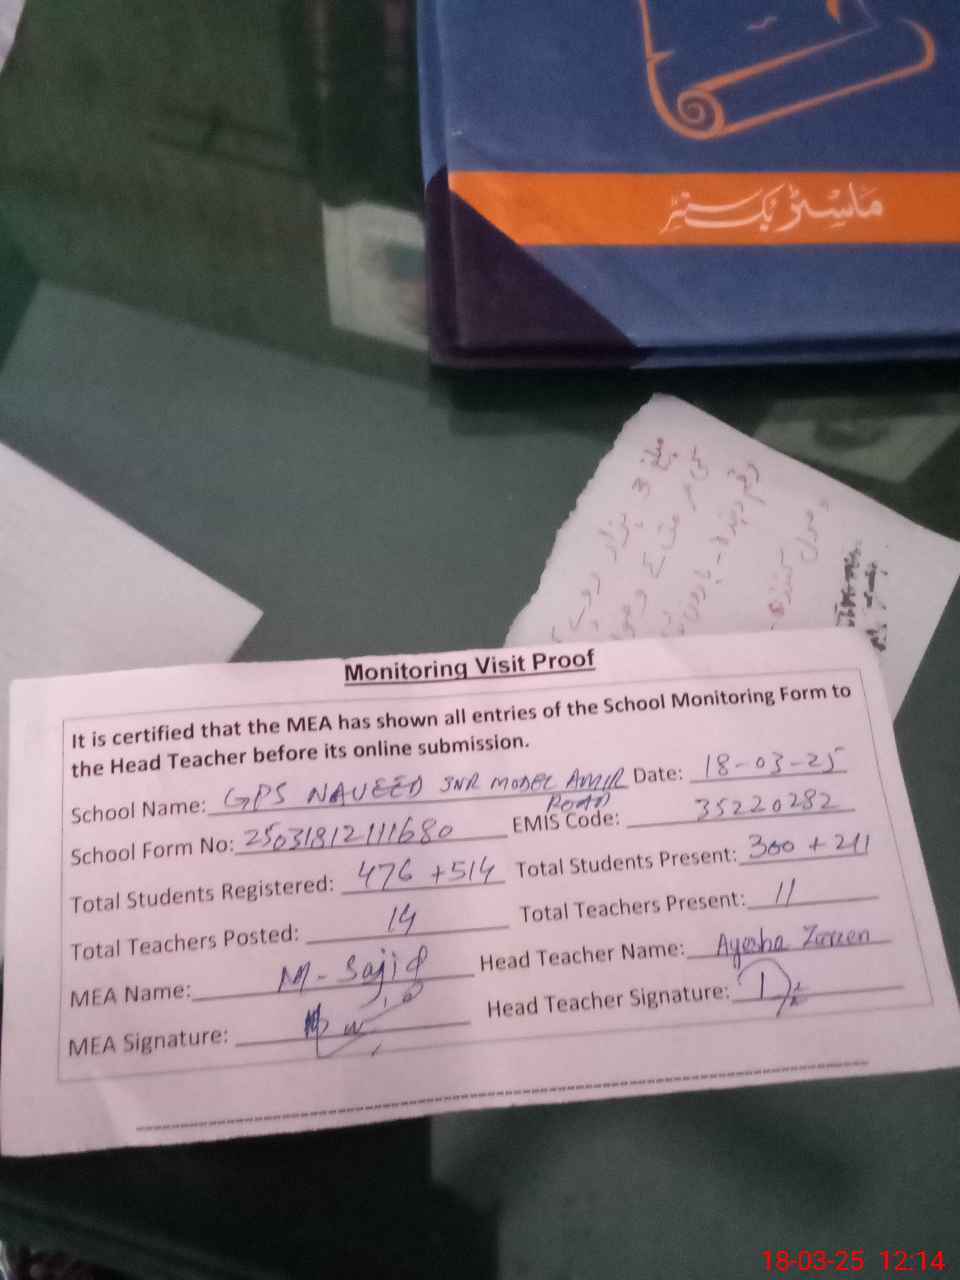 ماسٹر بک سنٹر
مبلغ 3 ہزار روپے
Monitoring Visit Proof
It is certified that the MEA has shown all entries of the School Monitoring Form to
the Head Teacher before its online submission.
School Name: GPS NAVEED JNR MODEL AMIR ROAD Date: 18-03-25
School Form No: 25031812111680 EMIS Code: 35220282
Total Students Registered: 476 + 514 Total Students Present: 300 + 211
Total Teachers Posted: 14 Total Teachers Present: 11
MEA Name: M-Sajid Head Teacher Name: Ayesha
MEA Signature: Head Teacher Signature:
18-03-25 12:14